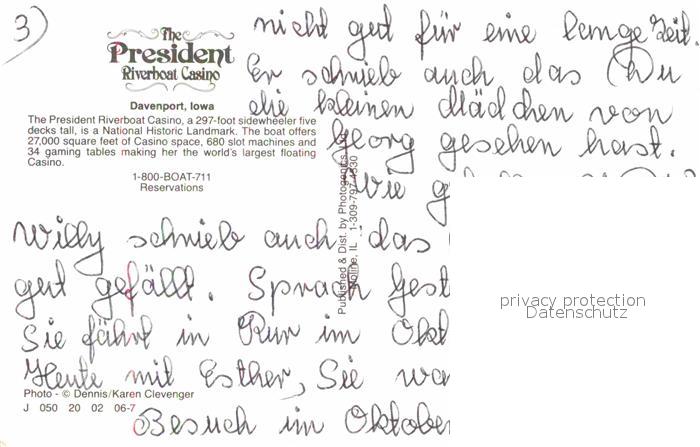 3)
The
President
Riverboat Casino
Davenport, Iowa
The President Riverboat Casino, a 297-foot sidewheeler five
decks tall, is a National Historic Landmark. The boat offers
27,000 square feet of Casino space, 680 slot machines and
34 gaming tables making her the world's largest floating
Casino.
1-800-BOAT-711
Reservations
nicht gut für eine lange Zeit.
Er schrieb auch das Du
die kleinen Mädchen von
Georg gesehen hast.
Wie
Willy schrieb auch das
gut gefällt. Sprach gest
Sie fährt in Kur im Okt
Heute mit Esther, Sie wa
Besuch im Oktober
Published & Dist. by Photogenics
Moline, IL 1-309-797-4330
Photo - © Dennis/Karen Clevenger
J 050 20 02 06-7
privacy protection
Datenschutz